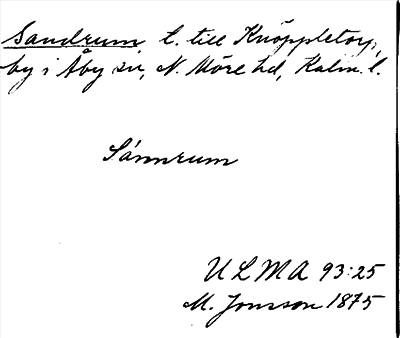 Sandrum l. till Knöppletorp,
by i Åby sn, N. Möre hd, Kalm. l.
Sánnrum
ULMA 93:25
M. Jonsson 1875